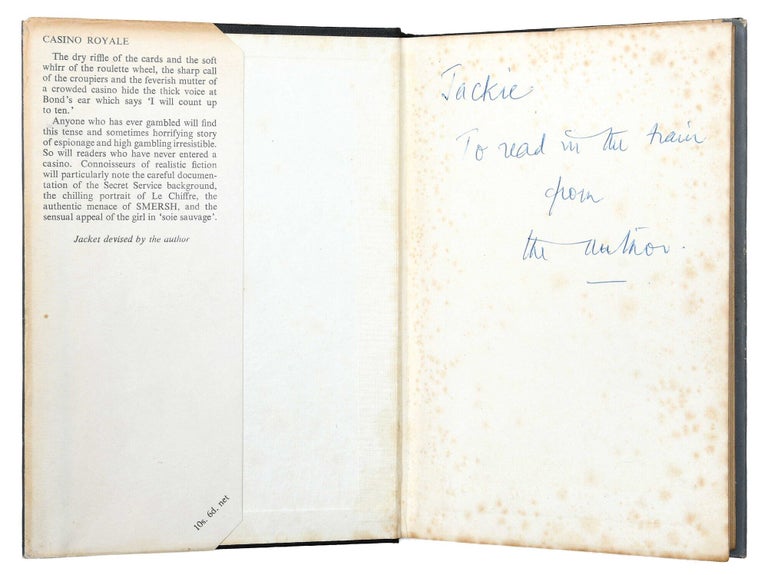 CASINO ROYALE
The dry riffle of the cards and the soft
whirr of the roulette wheel, the sharp call
of the croupiers and the feverish mutter of
a crowded casino hide the thick voice at
Bond's ear which says 'I will count up
to ten.'
Anyone who has ever gambled will find
this tense and sometimes horrifying story
of espionage and high gambling irresistible.
So will readers who have never entered a
casino. Connoisseurs of realistic fiction
will particularly note the careful documen-
tation of the Secret Service background,
the chilling portrait of Le Chiffre, the
authentic menace of SMERSH, and the
sensual appeal of the girl in 'soie sauvage'.
Jacket devised by the author
10s. 6d. net
Jackie
To read in the train
from
the author.